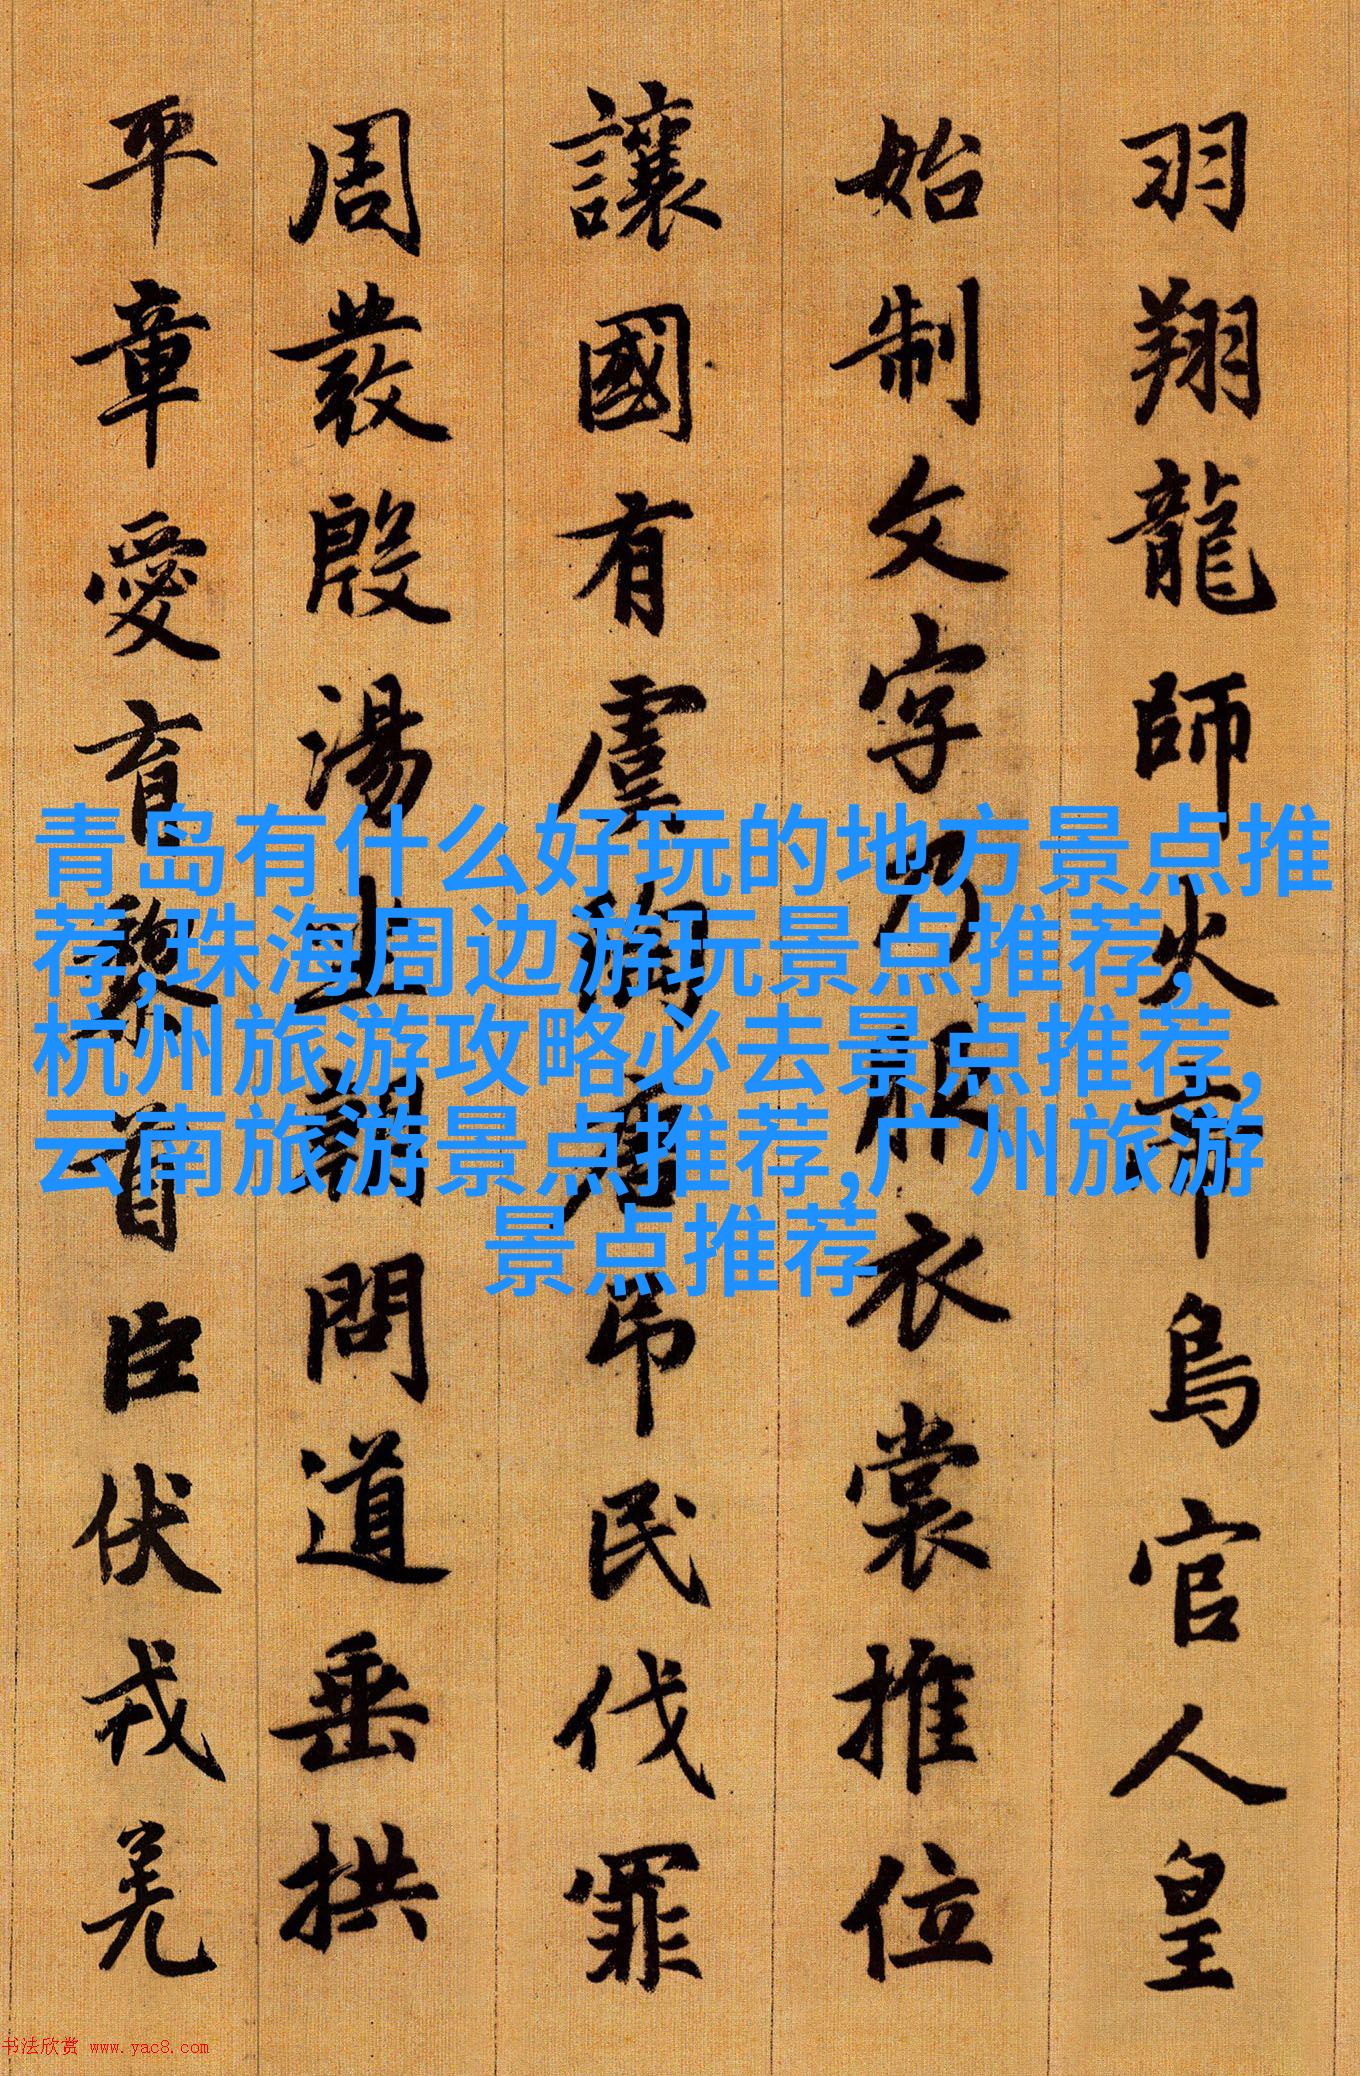 羽翔龍師火帝鳥官人皇
始制文字乃服衣裳推位
讓國有虞陶唐吊民伐罪
周發殷湯坐朝問道垂拱
平章愛育黎首臣伏戎羌
青岛有什么好玩的地方景点推
荐,珠海周边游玩景点推荐,
杭州旅游攻略必去景点推荐,
云南旅游景点推荐,广州旅游
景点推荐
书法欣赏 www.yac8.com